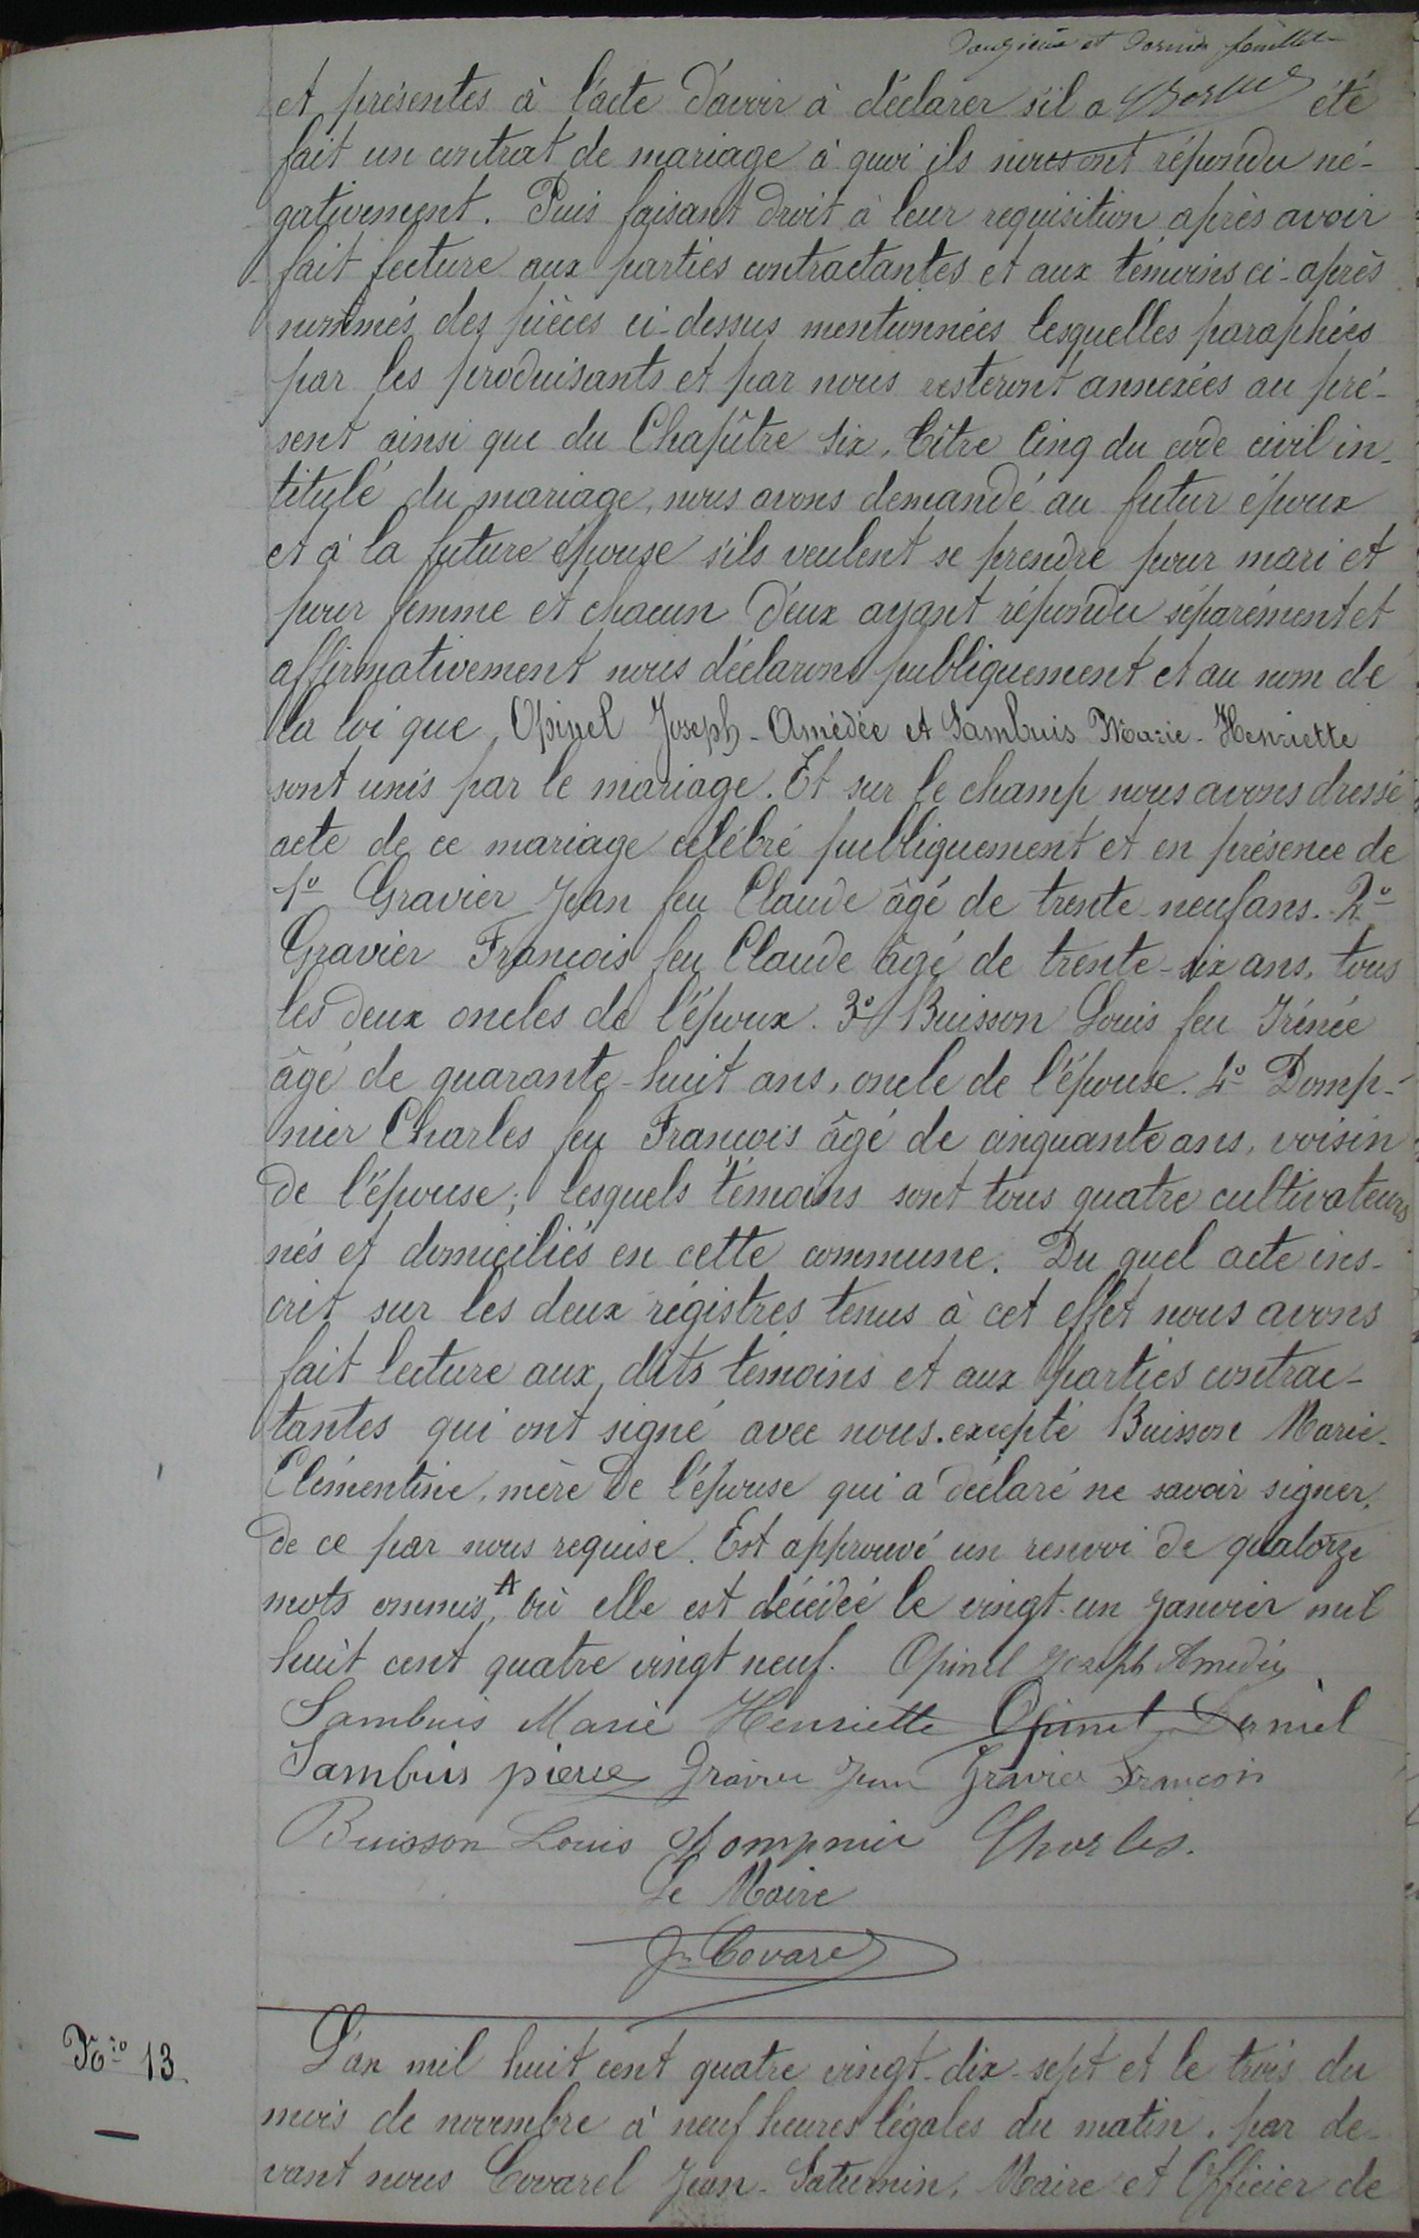 Douzième et dernier feuillet
et présentes à l'acte d'avoir à déclarer s'il a été
fait un contrat de mariage à quoi ils nous ont répondu né-
gativement. Puis faisant droit à leur requisition après avoir
fait lecture aux parties contractantes et aux témoins ci-après
nommés des pièces ci-dessus mentionnées lesquelles paraphées
par les produisants et par nous resteront annexées au pré-
sent ainsi que du Chapître six, titre cinq du code civil in-
titulé du mariage, nous avons demandé au futur époux
et à la future épouse s'ils veulent se prendre pour mari et
pour femme et chacun d'eux ayant répondu séparément et
affirmativement nous déclarons publiquement et au nom de
la loi que Opinel Joseph-Amédée et Sambuis Marie-Henriette
sont unis par le mariage. Et sur le champ nous avons dressé
acte de ce mariage célébré publiquement et en présence de
1º Gravier Jean feu Claude âgé de trente-neuf ans. 2º
Gravier François feu Claude âgé de trente-six ans, tous
les deux oncles de l'époux. 3º Buisson Louis feu Irénée
âgé de quarante-huit ans, oncle de l'épouse. 4º Domp-
nier Charles feu François âgé de cinquante ans, voisin
de l'épouse; lesquels témoins sont tous quatre cultivateurs
nés et domiciliés en cette commune. Du quel acte ins-
crit sur les deux régistres tenus à cet effet nous avons
fait lecture aux dits témoins et aux parties contrac-
tantes qui ont signé avec nous. excepté Buisson Marie-
Clémentine, mère de l'épouse qui a déclaré ne savoir signer,
de ce par nous requise. Est approuvé un renvoi de quatorze
mots ommis, A où elle est décédée le vingt-un janvier mil
huit cent quatre vingt neuf. Opinel Joseph Amédée
Sambuis Marie Henriette Opinel Daniel
Sambuis pierre Gravier Jean Gravier François
Buisson Louis Dompnier Charles.
Le Maire
Jn Covarel
Nº 13
L'an mil huit cent quatre vingt-dix-sept et le trois du
mois de novembre à neuf heures légales du matin, par de-
vant nous Covarel Jean-Saturnin, Maire et Officier de